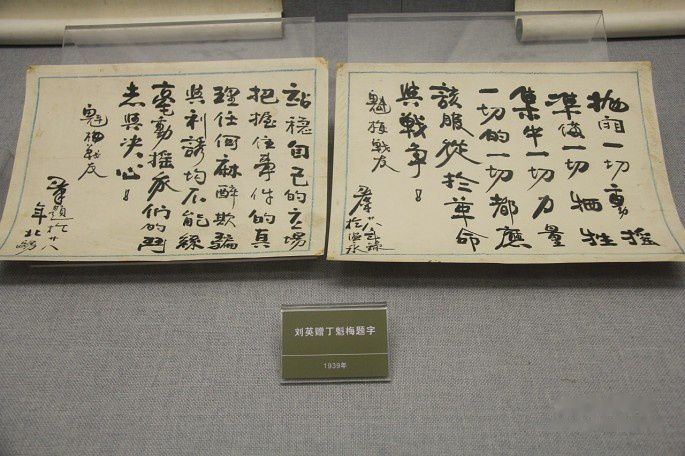 抛開一切動搖
準備一切牺牲
集中一切力量
一切的一切都應
該服從於革命
與戰争！
魁梅戰友
站穩自己的立場
把握住事件的真
理任何麻醉欺騙
與利誘均不能絲
毫動摇我們的鬥
志與决心！
魁梅戰友
題於廿八
年北
刘英赠丁魁梅题字
1939年